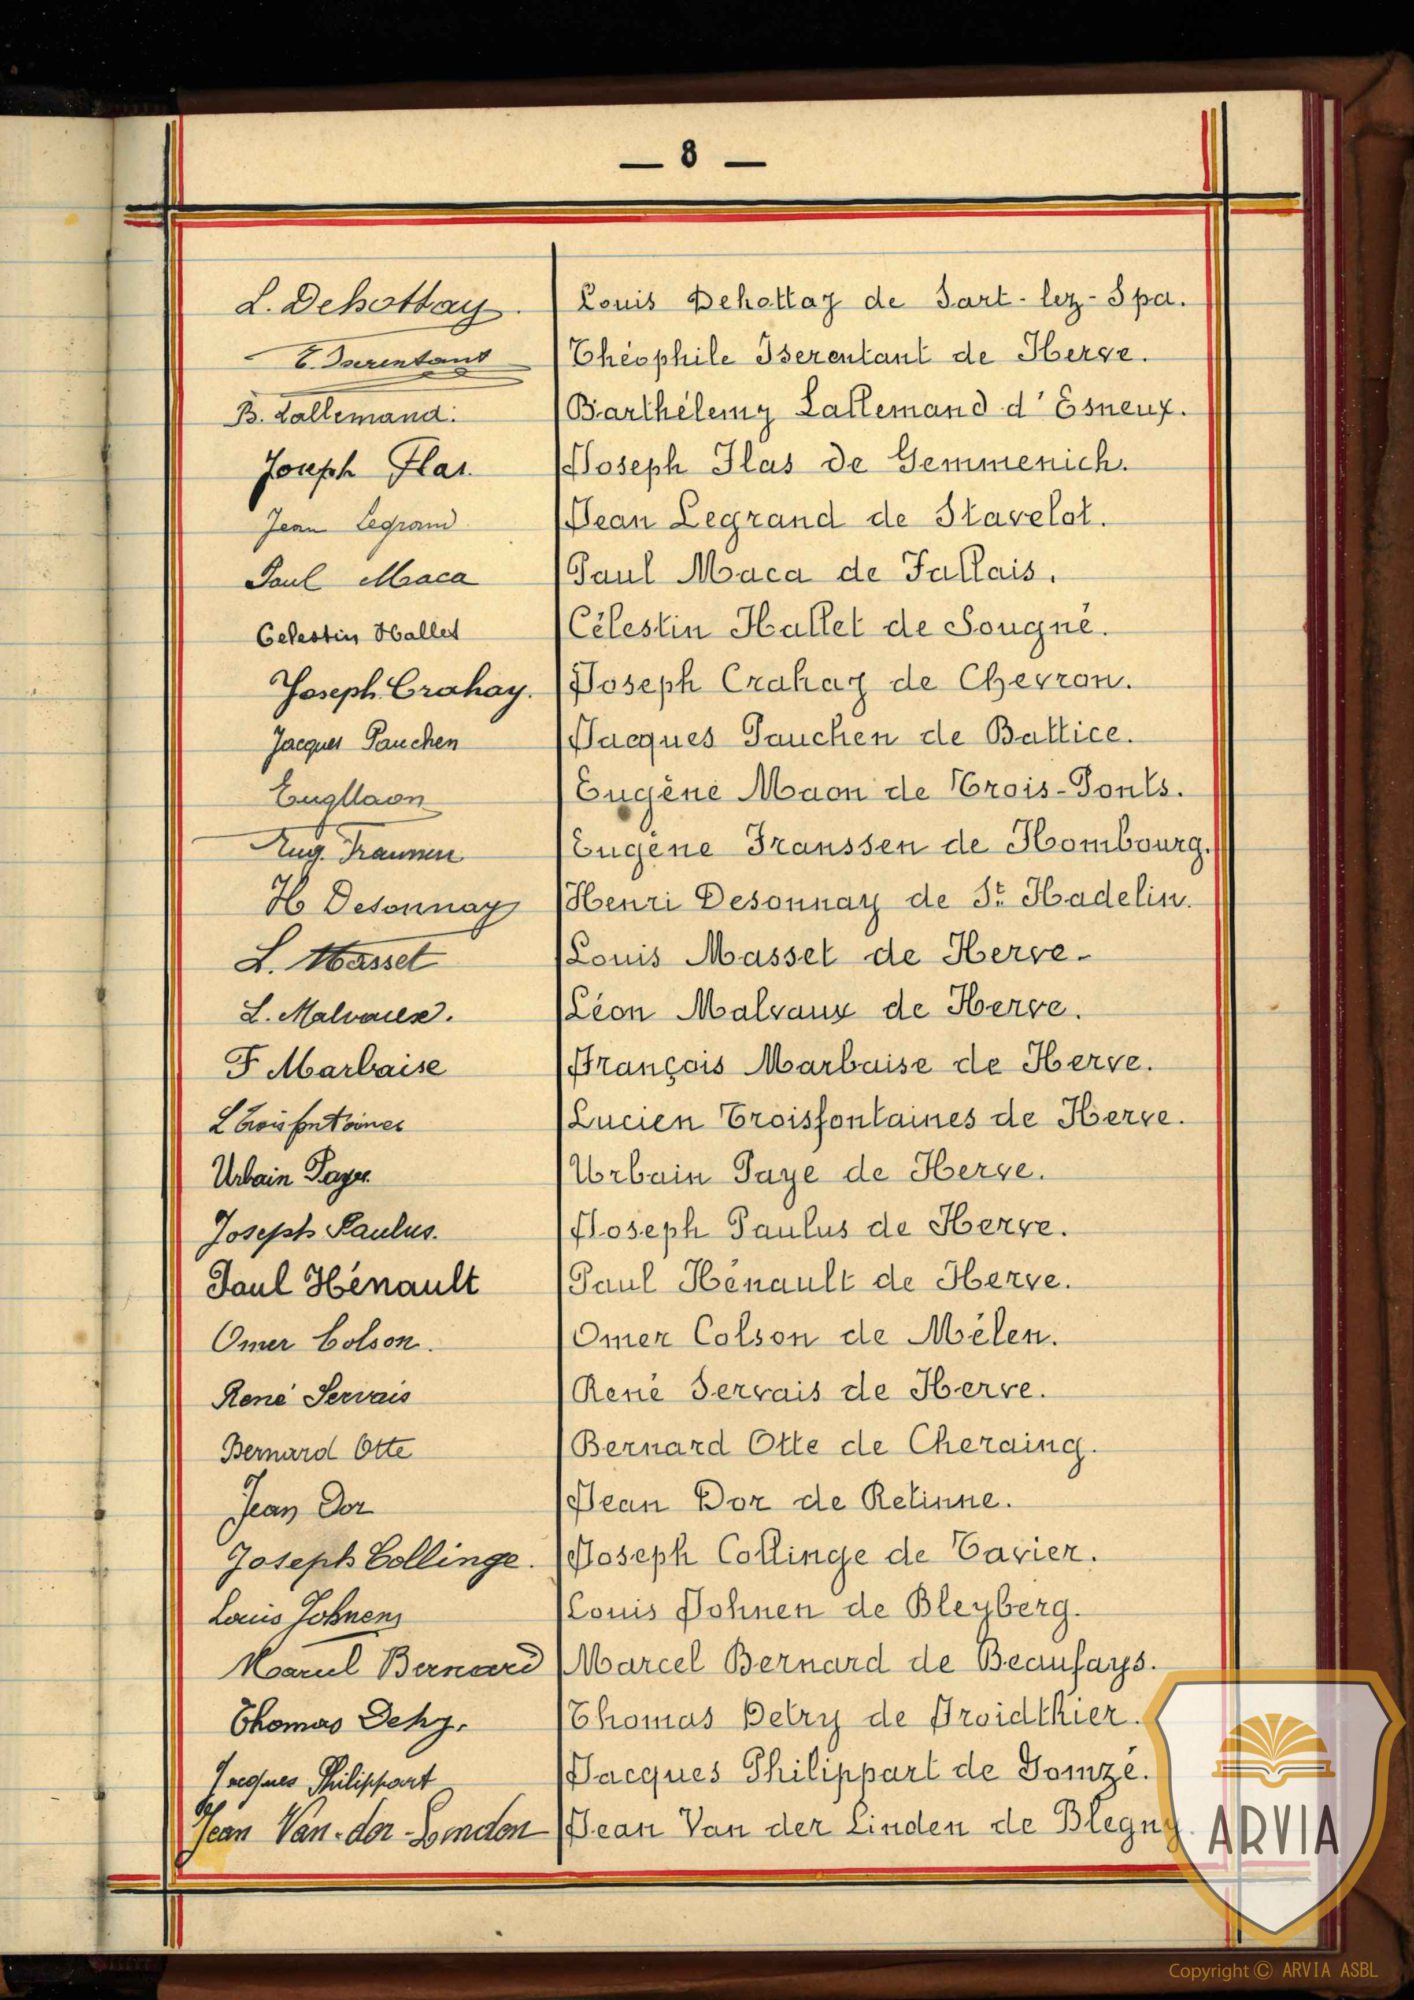 — 8 —
L. Dehottay. Louis Dehottay de Sart-lez-Spa.
T. Iserentant Théophile Iserentant de Herve.
B. Lallemand. Barthélemy Lallemand d'Esneux.
Joseph Flas. Joseph Flas de Gemmenich.
Jean Legrand Jean Legrand de Stavelot.
Paul Maca Paul Maca de Fallais.
Celestin Hallet Célestin Hallet de Sougné.
Joseph Crahay. Joseph Crahay de Chevron.
Jacques Pauchen Jacques Pauchen de Battice.
Eug Maon Eugène Maon de Trois-Ponts.
Eug. Franssen Eugène Franssen de Hombourg.
H Desonnay Henri Desonnay de St. Hadelin.
L. Masset Louis Masset de Herve-
L. Malvaux. Léon Malvaux de Herve.
F Marbaise François Marbaise de Herve.
L Troisfontaines Lucien Troisfontaines de Herve.
Urbain Paye. Urbain Paye de Herve.
Joseph Paulus. Joseph Paulus de Herve.
Paul Hénault Paul Hénault de Herve.
Omer Colson. Omer Colson de Mélen.
René Servais René Servais de Herve.
Bernard Otte Bernard Otte de Cheraing.
Jean Dor Jean Dor de Retinne.
Joseph Collinge. Joseph Collinge de Tavier.
Louis Johnen Louis Johnen de Bleyberg.
Marcel Bernard Marcel Bernard de Beaufays.
Thomas Detry. Thomas Detry de Froidthier.
Jacques Philippart Jacques Philippart de Gomzé.
Jean Van-der-Linden Jean Van der Linden de Blegny.
ARVIA
Copyright © ARVIA ASBL